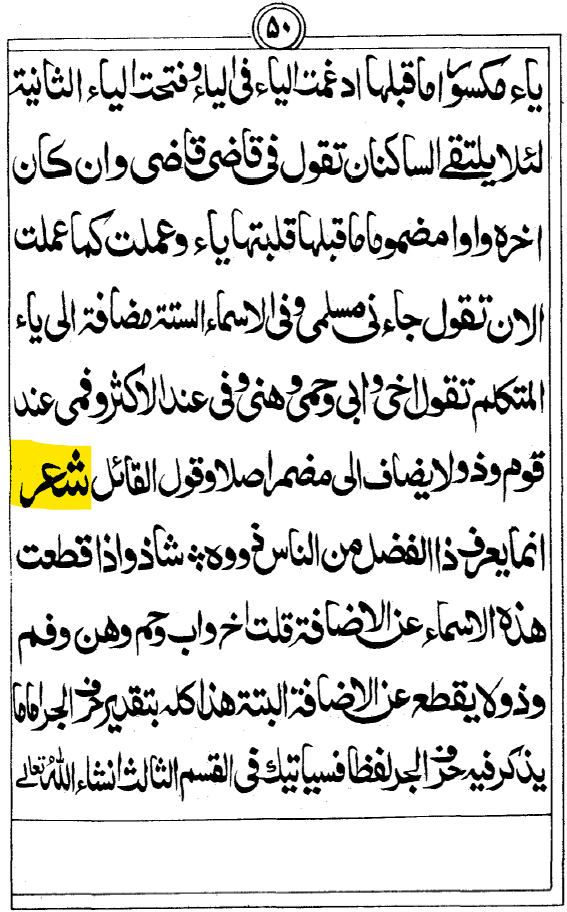 ۵۰
ياء مكسورا ماقبلها ادغمت الياء فى الياء وفتحت الياء الثانية
لئلا يلتقى الساكنان تقول فى قاضى قاضى وان كان
اخره واوا مضموما ماقبلها قلبتها ياء وعملت كما عملت
الان تقول جاءنى مسلمى وفى الاسماء الستة مضافة الى ياء
المتكلم تقول اخى وابى وحمى وهنى وفى عند الاكثر وفمى عند
قوم وذو لا يضاف الى مضمر اصلا وقول القائل شعر
انما يعرف ذا الفضل من الناس ذووه ؞ شاذ واذا قطعت
هذه الاسماء عن الاضافة قلت اخ واب وحم وهن وفم
وذو لا يقطع عن الاضافة البتة هذا كله بتقدير حرف الجر اما ما
يذكر فيه حرف الجر لفظا فسياتيك فى القسم الثالث انشاء الله تعالى